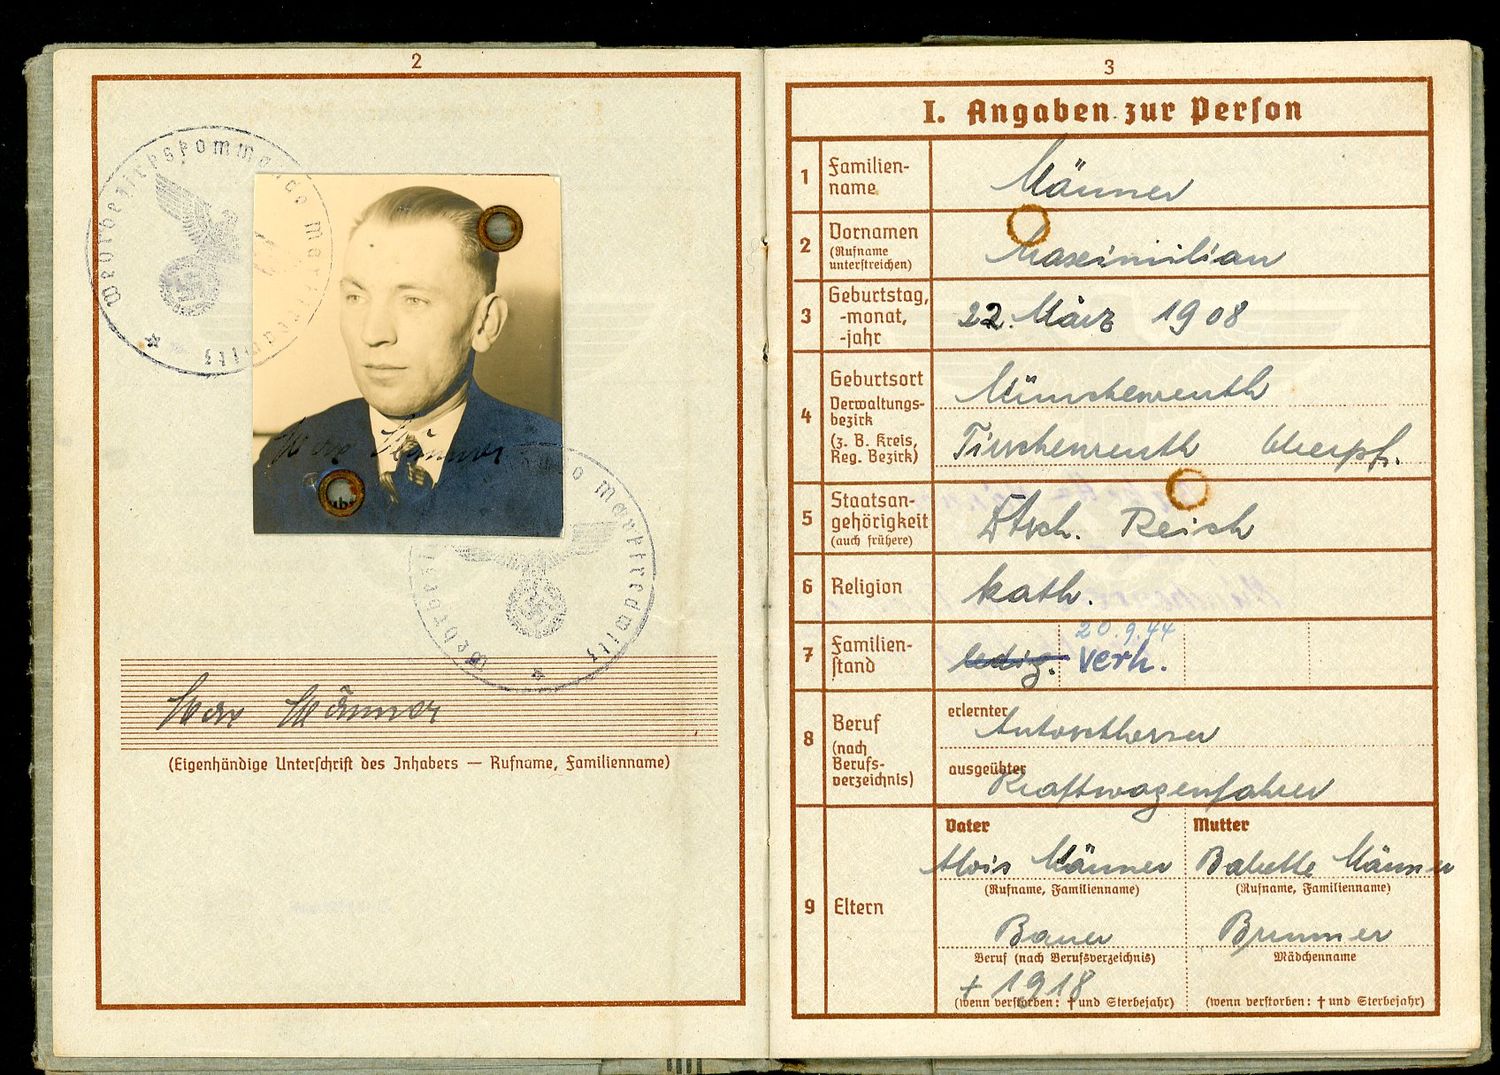 2
Wehrbezirkskommando Marktredwitz
Max Männer
Wehrbezirkskommando Marktredwitz
Max Männer
(Eigenhändige Unterschrift des Inhabers — Rufname, Familienname)
3
I. Angaben zur Person
1 Familien-
name
Männer
2 Vornamen
(Rufname
unterstreichen)
Maximilian
3 Geburtstag,
-monat,
-jahr
22. März 1908
4 Geburtsort
Verwaltungs-
bezirk
(z. B. Kreis,
Reg. Bezirk)
Münchenreuth
Tirschenreuth Oberpf.
5 Staatsan-
gehörigkeit
(auch frühere)
Dtsch. Reich
6 Religion
kath.
7 Familien-
stand
ledig.
20.9.44
verh.
8 Beruf
(nach
Berufs-
verzeichnis)
erlernter
ausgeübter
Kraftwagenfahrer
9 Eltern
Vater
Alois Männer
(Rufname, Familienname)
Bauer
Beruf (nach Berufsverzeichnis)
+ 1918
(wenn verstorben: † und Sterbejahr)
Mutter
Babette Männer
(Rufname, Familienname)
Brunner
Mädchenname
(wenn verstorben: † und Sterbejahr)